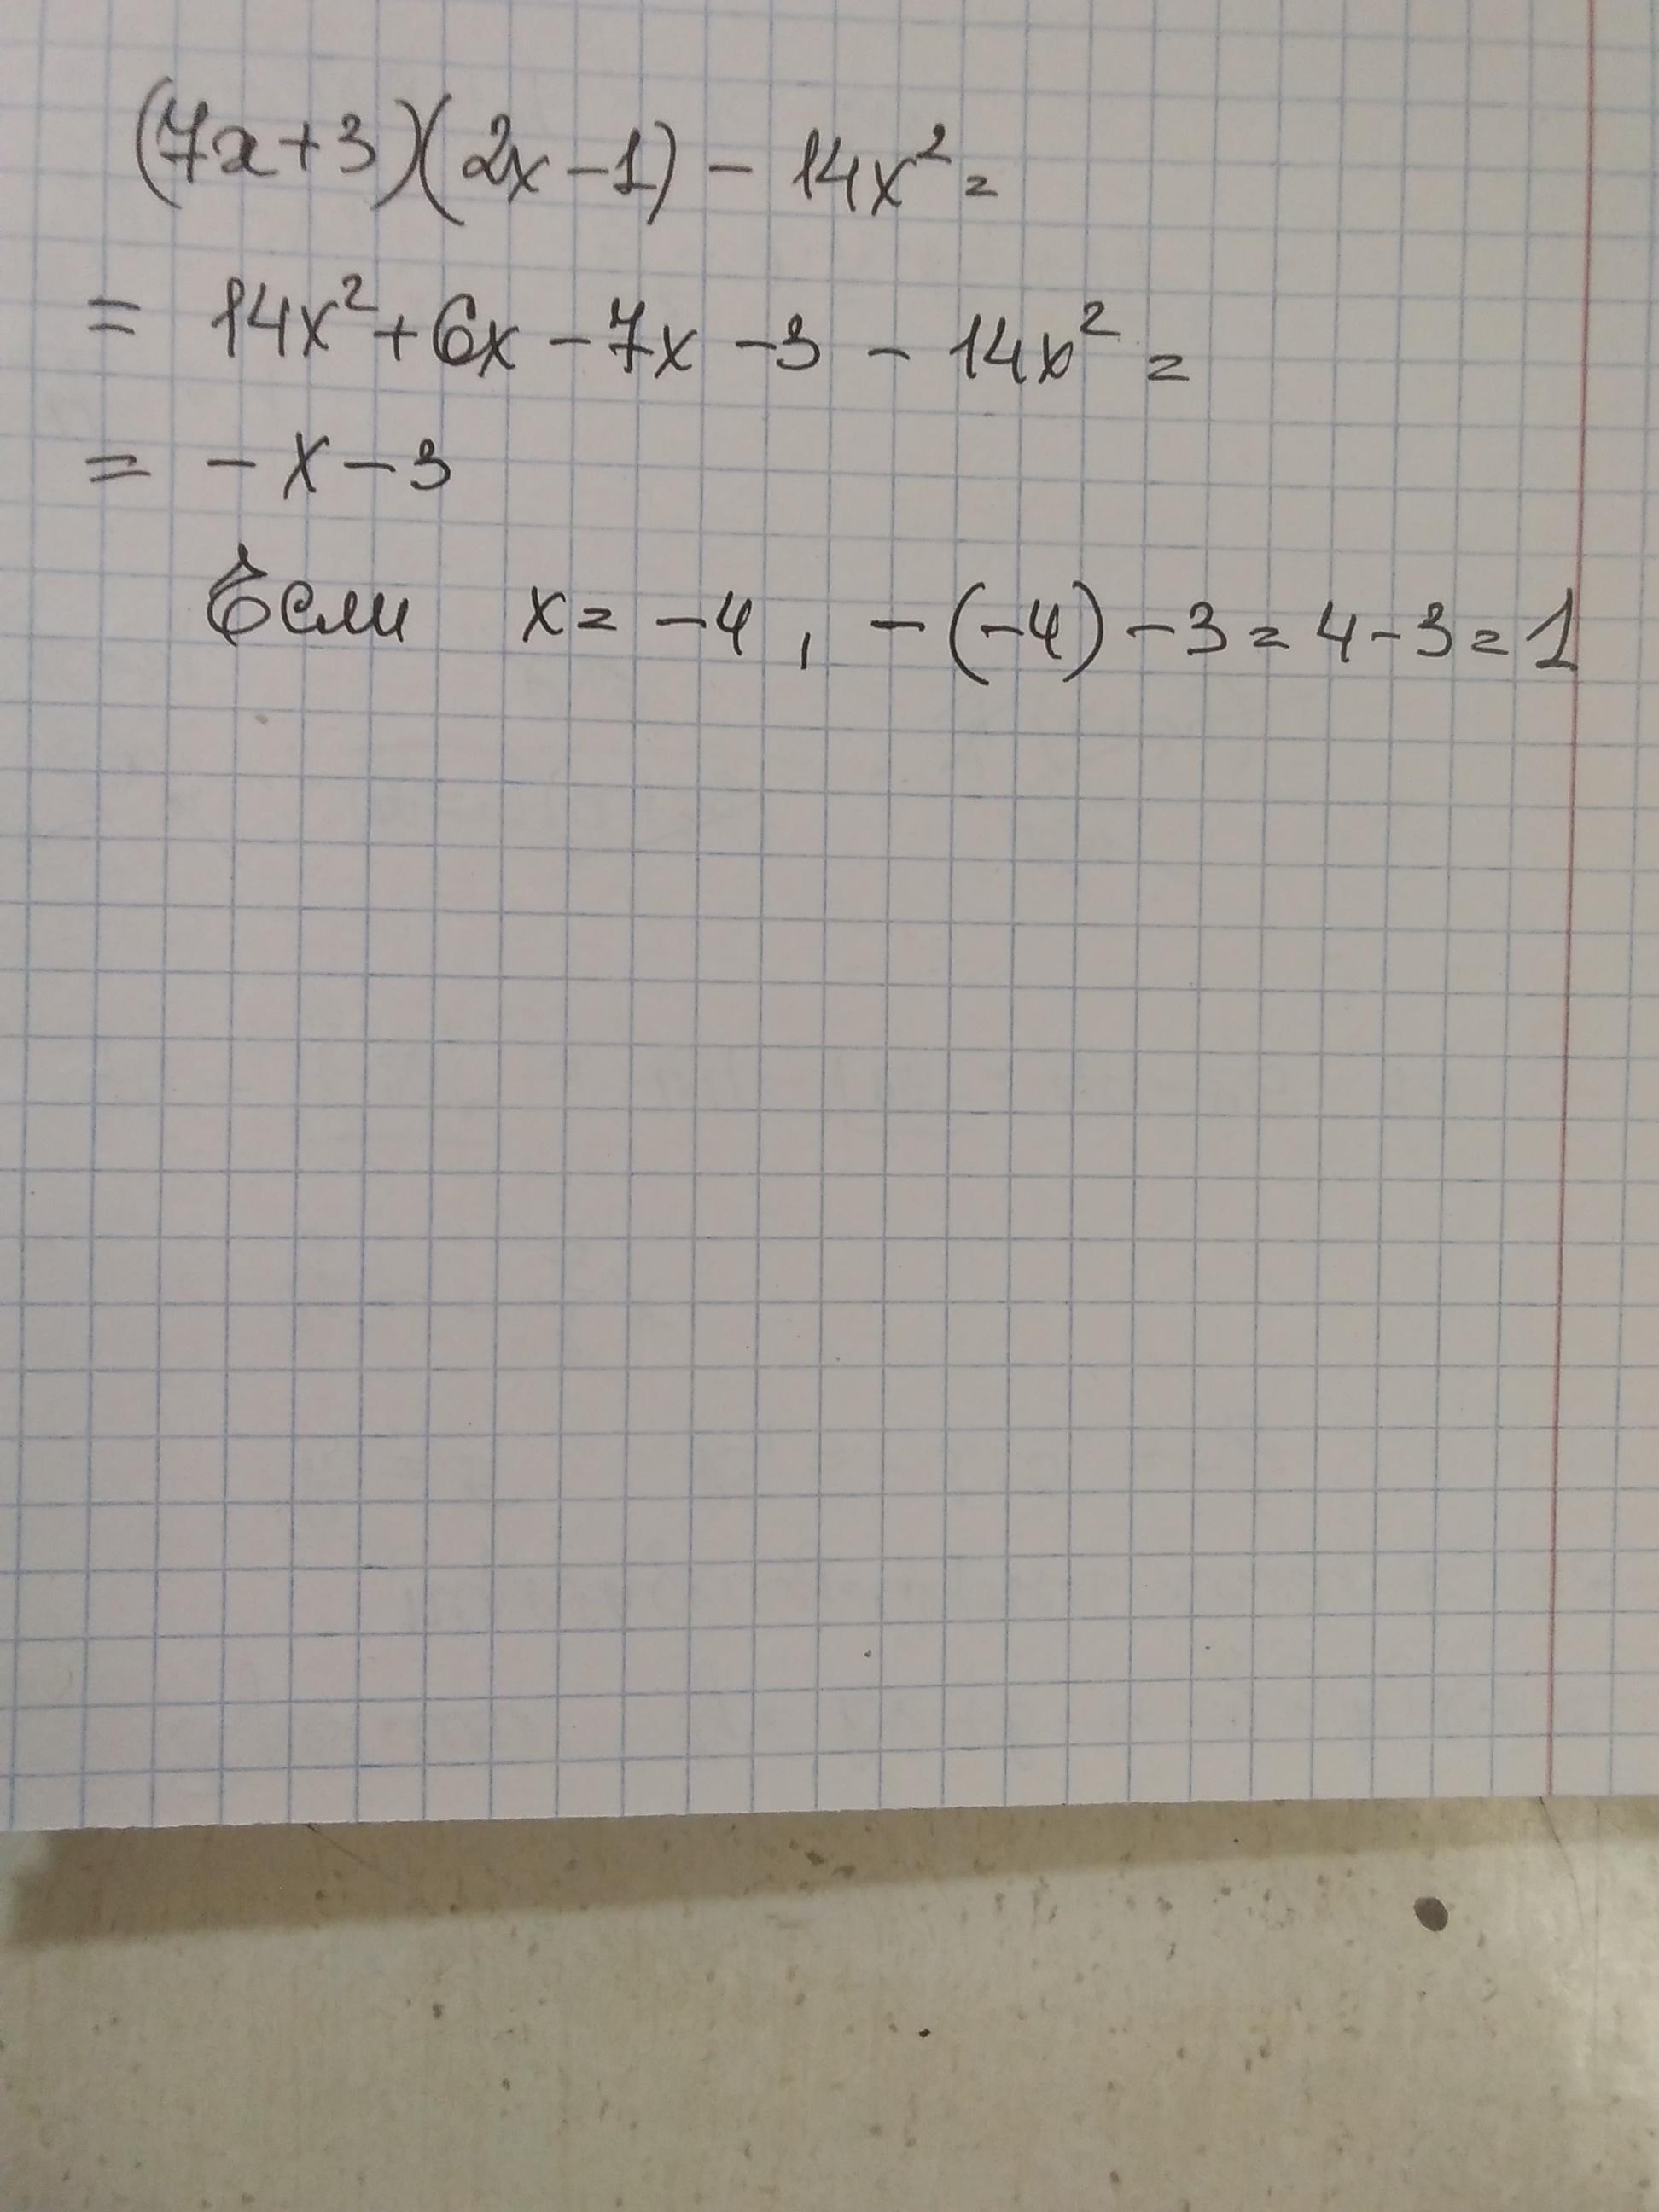 (7x+3)(2x-1) - 14x² =
= 14x² + 6x - 7x - 3 - 14x² =
= - x - 3
Если x = -4, -(-4) - 3 = 4 - 3 = 1